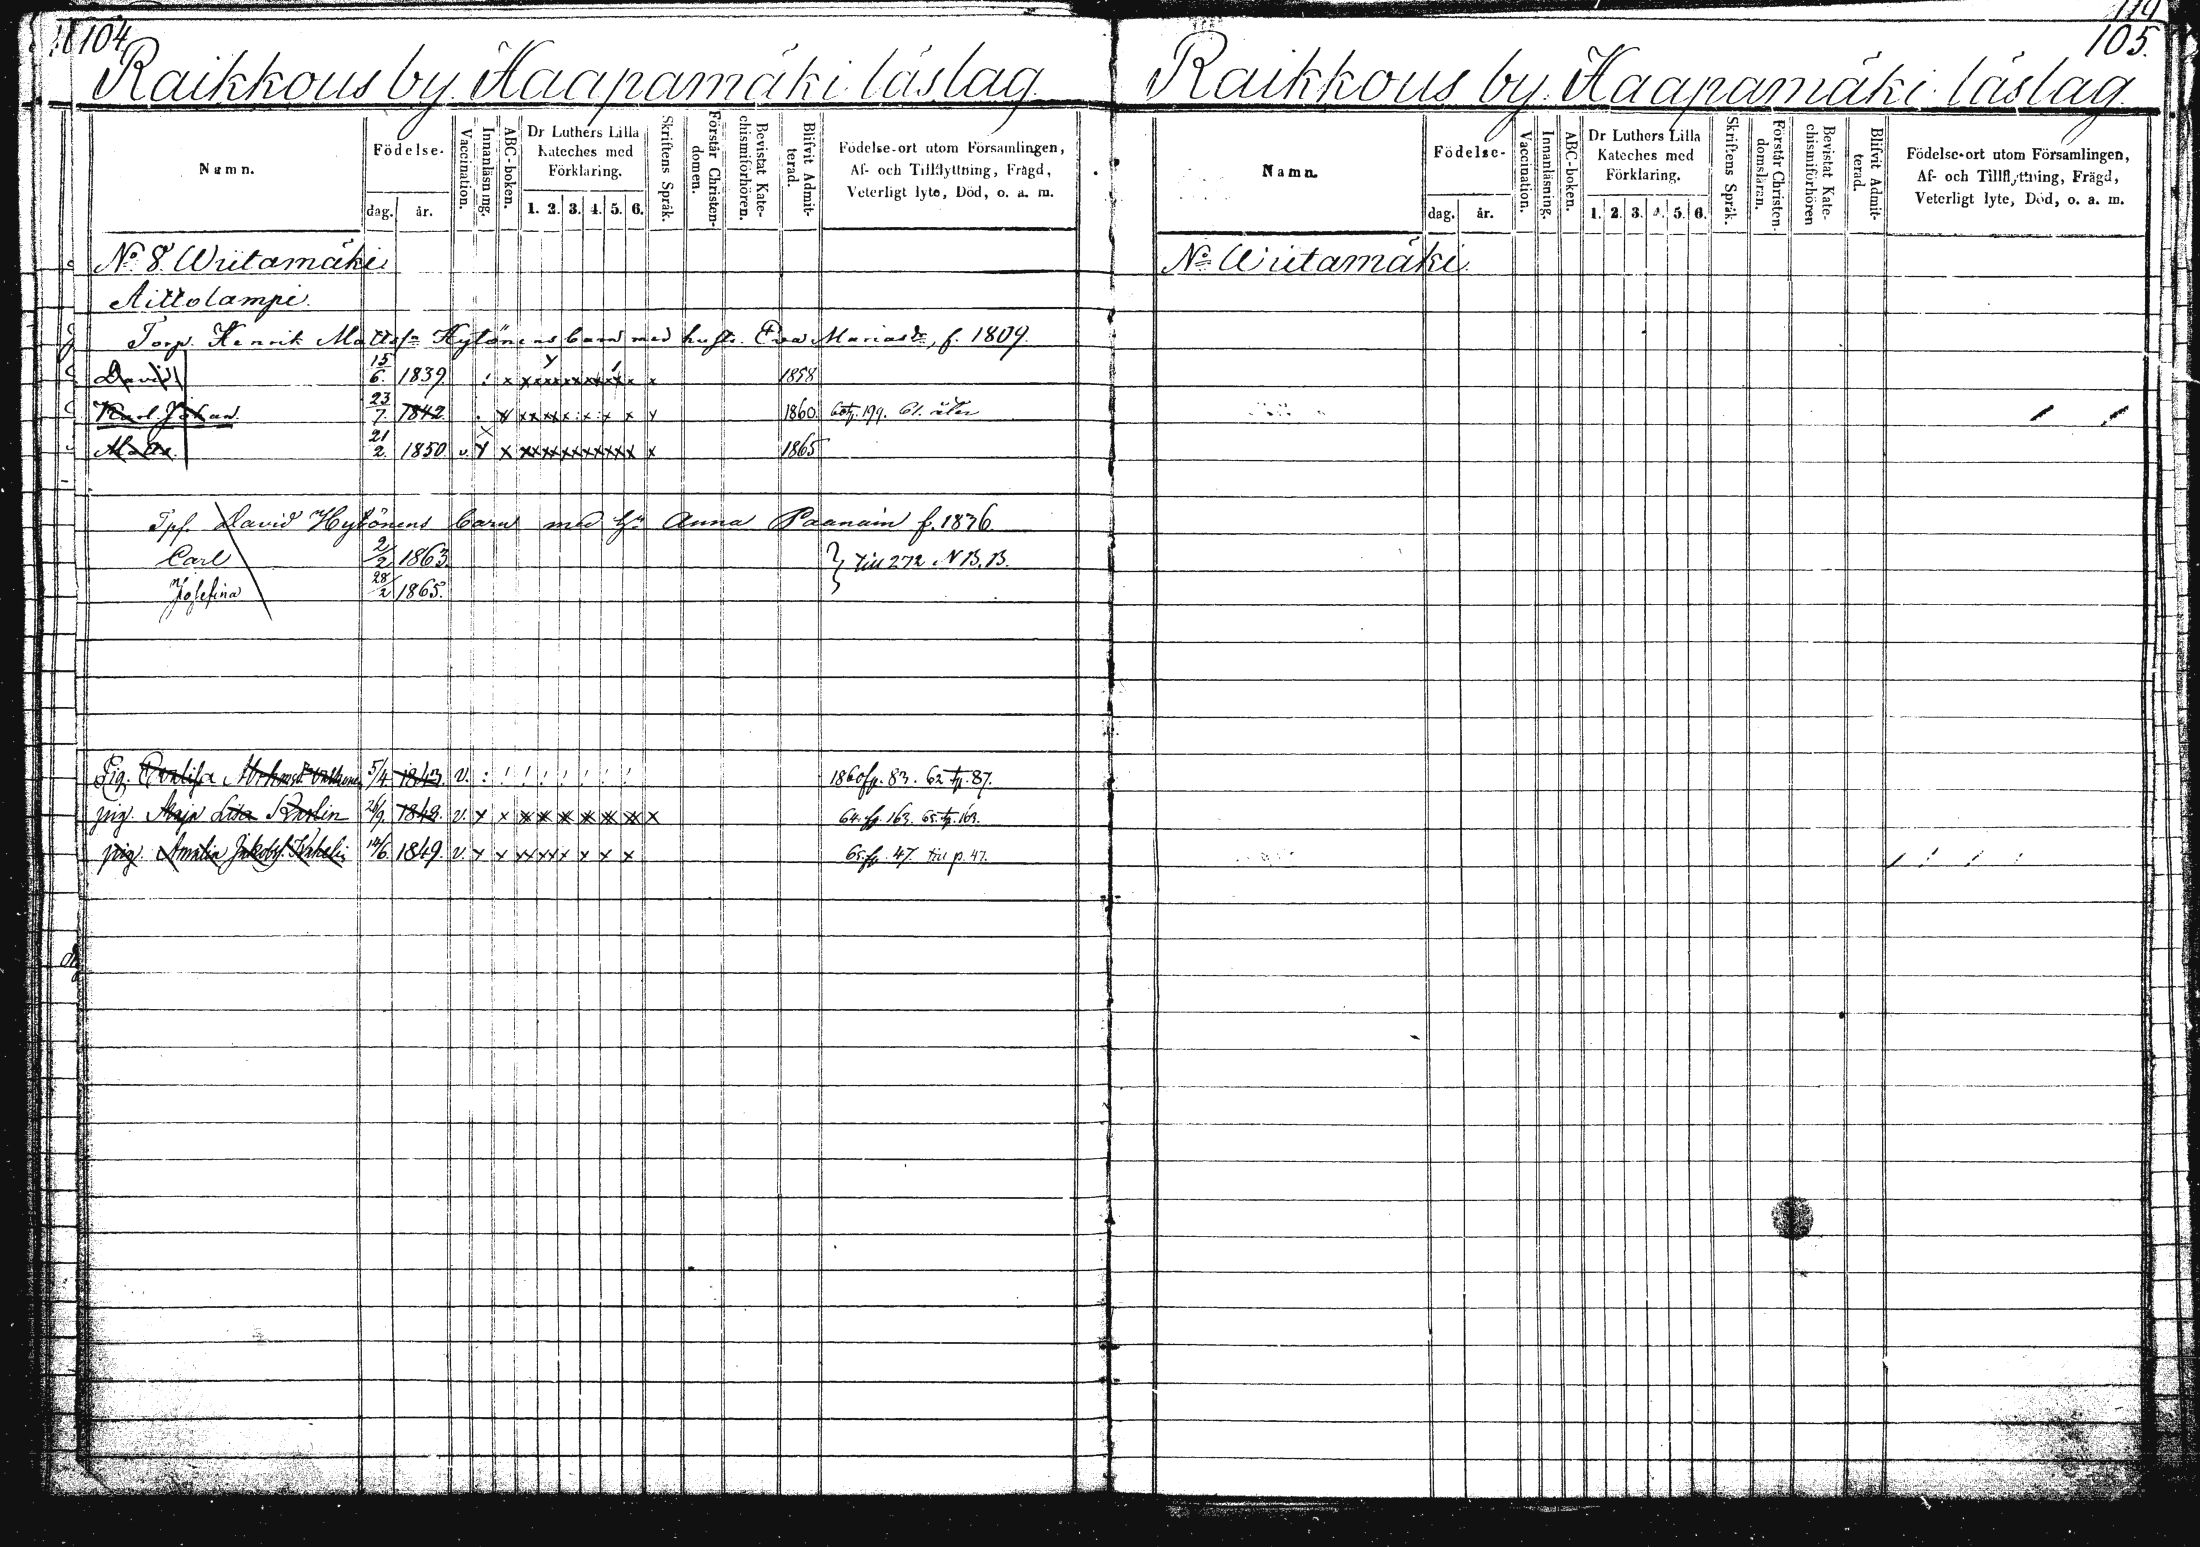 104.
Raikkous by. Haapamäki läslag.
Namn.
Födelse-
dag.
år.
Vaccination.
Innanläsning.
ABC-boken.
Dr Luthers Lilla
Kateches med
Förklaring.
1. 2. 3. 4. 5. 6.
Skriftens Språk.
Förstår Christen-
domen.
Bevistat Kate-
chismiförhören.
Blifvit Admit-
terad.
Födelse-ort utom Församlingen,
Af- och Tillflyttning, Frägd,
Veterligt lyte, Död, o. a. m.
No 8 Wiitamäki
Aittolampi.
Torp. Henrik Mattsfn Hytönens barn med hustr. Eva Mariasdr, f. 1809.
David 15/6. 1839. 1858
Karl Johan. 23/7. 1842. 1860. 199. 61. åter
Matts. 21/2. 1850 v. 1865
Tpf. David Hytönens barn med Hu Anna Paanain f. 1836
Carl 2/2 1863. } till 272 NB.B.
Josefina 28/2 1865.
Pig. 5/4. 1843. v. 1860 fp. 83. 62 tp. 87.
pig. Maja Lisa 26/9. 1849. v. 64. fp. 163. 65. tp. 163.
pig. Amalia Jakobsd. 14/6. 1849. v. 65. fp. 47. till p. 47.
119
105.
Raikkous by. Haapamäki läslag.
Namn.
Födelse-
dag.
år.
Vaccination.
Innanläsning.
ABC-boken.
Dr Luthers Lilla
Kateches med
Förklaring.
1. 2. 3. 4. 5. 6.
Skriftens Språk.
Förstår Christen-
domsläran.
Bevistat Kate-
chismiförhören
Blifvit Admit-
terad.
Födelse-ort utom Församlingen,
Af- och Tillflyttning, Frägd,
Veterligt lyte, Död, o. a. m.
No Wiitamäki